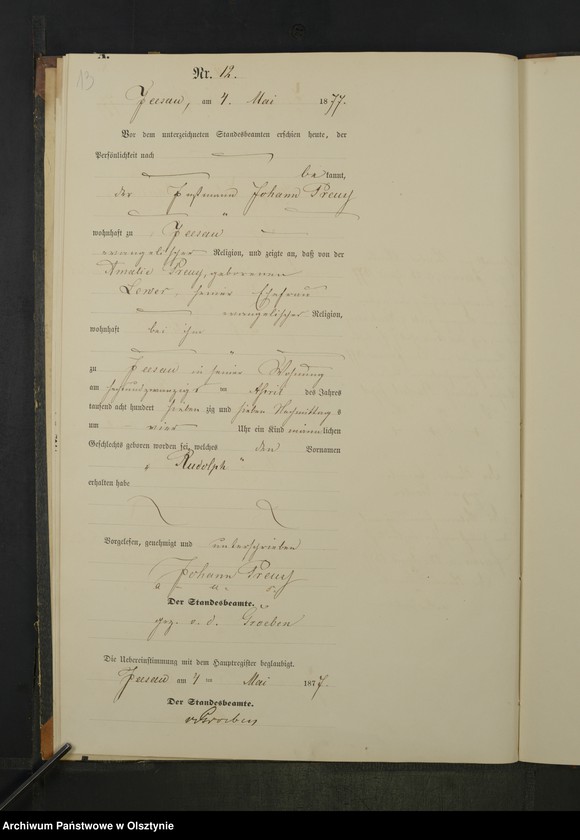 A.
13
Nr. 12.
Jeesau, am 4. Mai 1877.
Vor dem unterzeichneten Standesbeamten erschien heute, der
Persönlichkeit nach
bekannt,
der Johann Preuß
wohnhaft zu Jeesau
evangelischer Religion, und zeigte an, daß von der
Amalie Preuß, geborenen
seiner Ehefrau
evangelischer Religion,
wohnhaft bei ihm
zu Jeesau in seiner Wohnung
am sechsundzwanzigs ten April des Jahres
tausend acht hundert sieben zig und sieben Nachmittags
um vier Uhr ein Kind männlichen
Geschlechts geboren worden sei, welches den Vornamen
"Rudolph"
erhalten habe
Vorgelesen, genehmigt und unterschrieben
Johann Preuß
Der Standesbeamte.
gez. v. d. Gröeben
Die Uebereinstimmung mit dem Hauptregister beglaubigt.
Jeesau am 4 ten Mai 1877.
Der Standesbeamte.
Archiwum Państwowe w Olsztynie